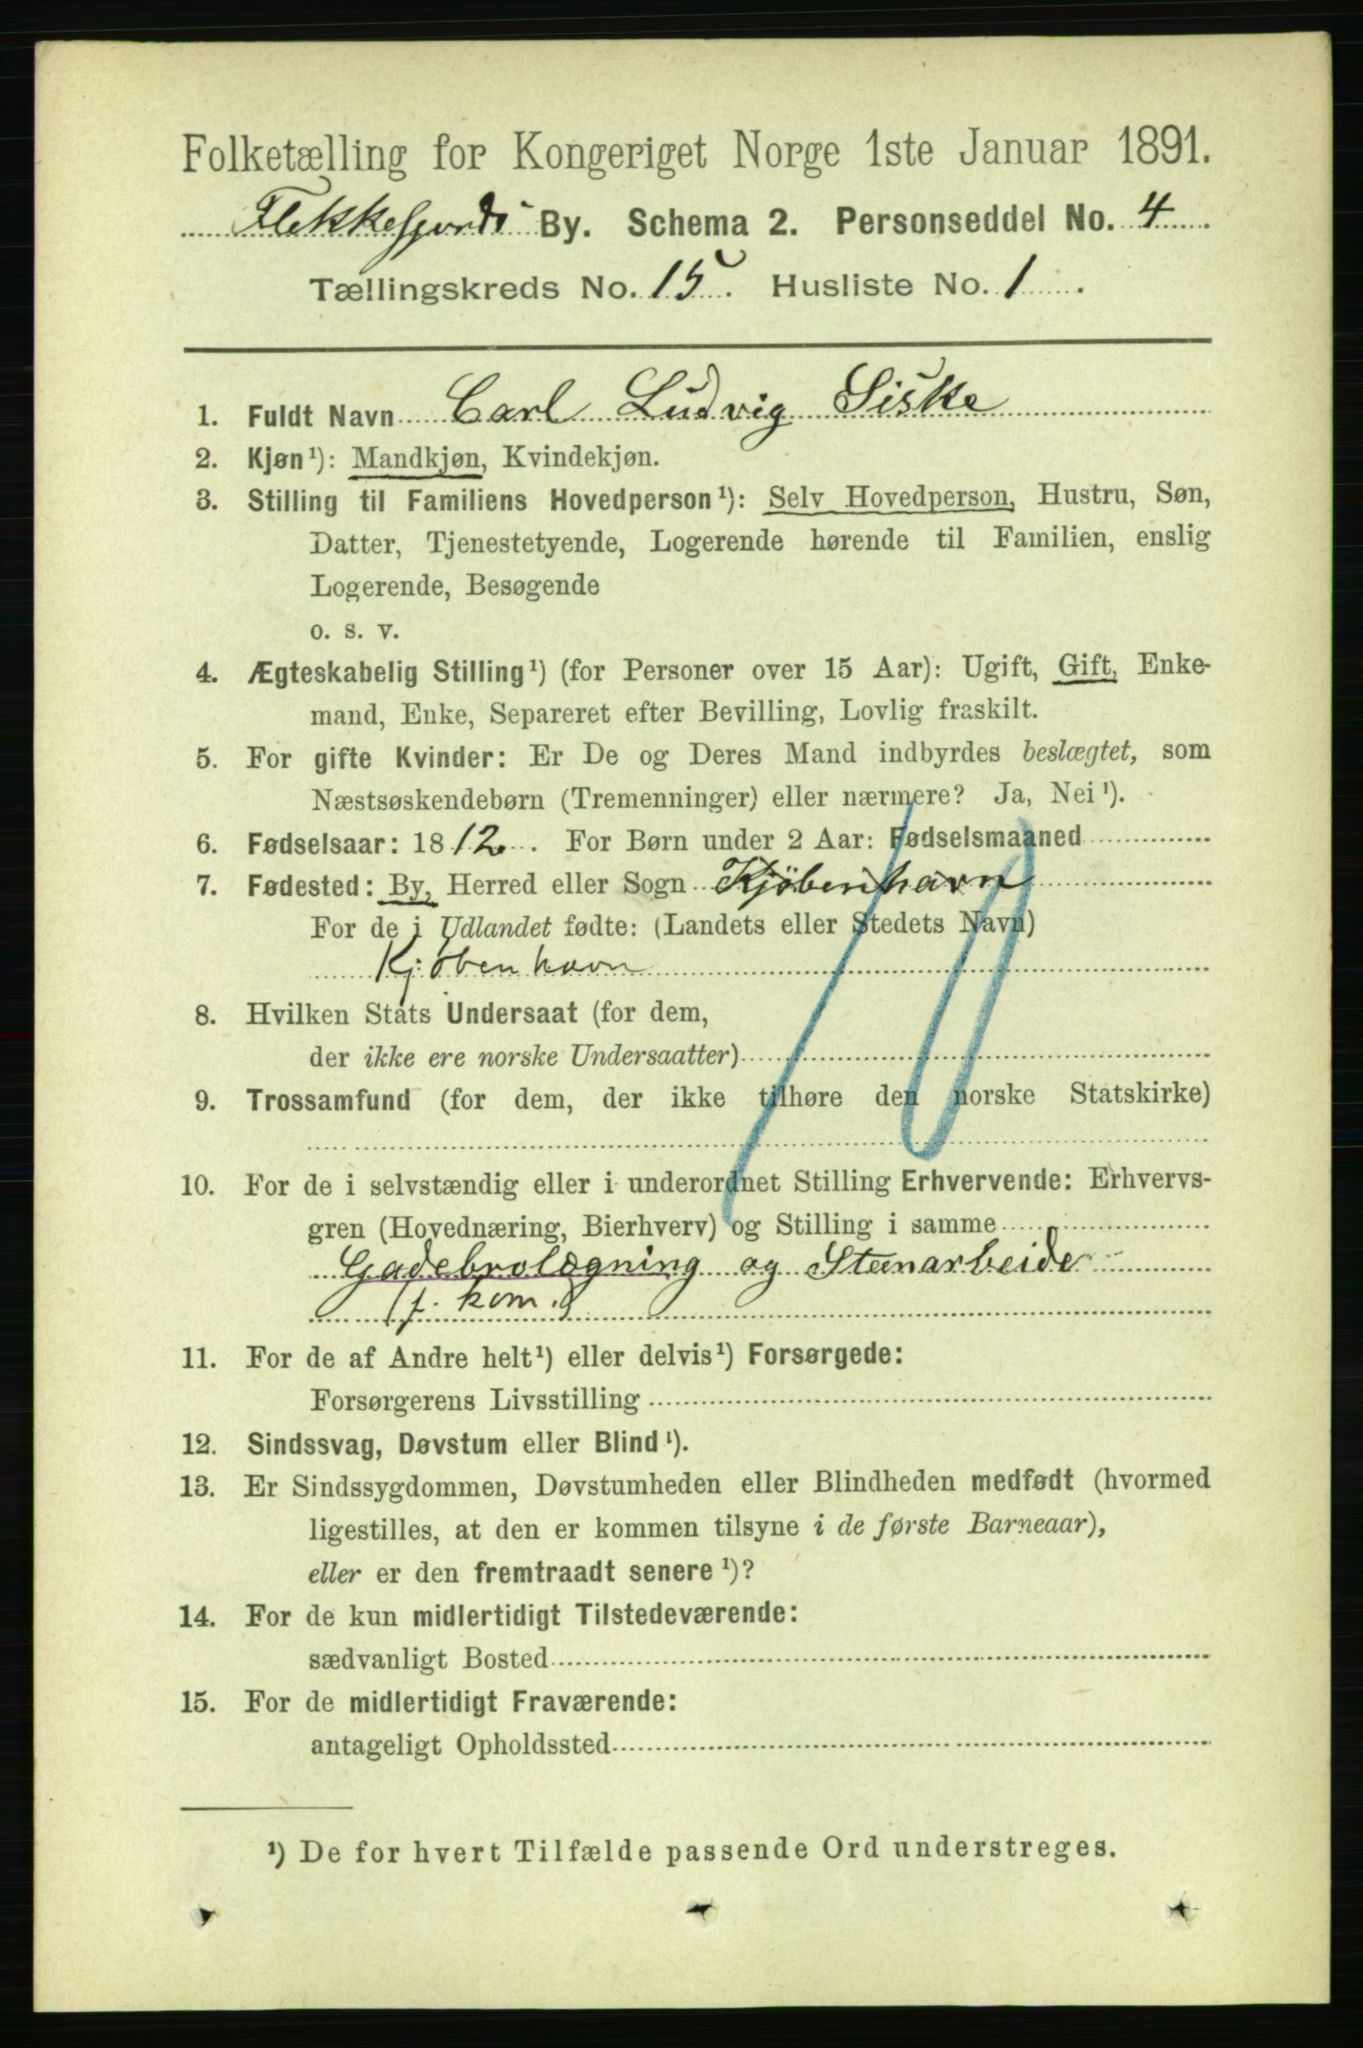 Folketælling for Kongeriget Norge 1ste Januar 1891.
Flekkefjords By. Schema 2. Personseddel No. 4
Tællingskreds No. 15. Husliste No. 1.
1. Fuldt Navn Carl Ludvig Siske
2. Kjøn¹): Mandkjøn, Kvindekjøn.
3. Stilling til Familiens Hovedperson¹): Selv Hovedperson, Hustru, Søn,
Datter, Tjenestetyende, Logerende hørende til Familien, enslig
Logerende, Besøgende
o. s. v.
4. Ægteskabelig Stilling¹) (for Personer over 15 Aar): Ugift, Gift, Enke-
mand, Enke, Separeret efter Bevilling, Lovlig fraskilt.
5. For gifte Kvinder: Er De og Deres Mand indbyrdes beslægtet, som
Næstsøskendebørn (Tremenninger) eller nærmere? Ja, Nei¹).
6. Fødselsaar: 1812. For Børn under 2 Aar: Fødselsmaaned
7. Fødested: By, Herred eller Sogn Kjöbenhavn
For de i Udlandet fødte: (Landets eller Stedets Navn)
Kjøbenhavn
8. Hvilken Stats Undersaat (for dem,
der ikke ere norske Undersaatter)
9. Trossamfund (for dem, der ikke tilhøre den norske Statskirke)
10. For de i selvstændig eller i underordnet Stilling Erhvervende: Erhvervs-
gren (Hovednæring, Bierhverv) og Stilling i samme
Gadebrolægning og Stenarbeide
(f. kom.)
11. For de af Andre helt¹) eller delvis¹) Forsørgede:
Forsørgerens Livsstilling
12. Sindssvag, Døvstum eller Blind¹).
13. Er Sindssygdommen, Døvstumheden eller Blindheden medfødt (hvormed
ligestilles, at den er kommen tilsyne i de første Barneaar),
eller er den fremtraadt senere¹)?
14. For de kun midlertidigt Tilstedeværende:
sædvanligt Bosted
15. For de midlertidigt Fraværende:
antageligt Opholdssted
¹) De for hvert Tilfælde passende Ord understreges.